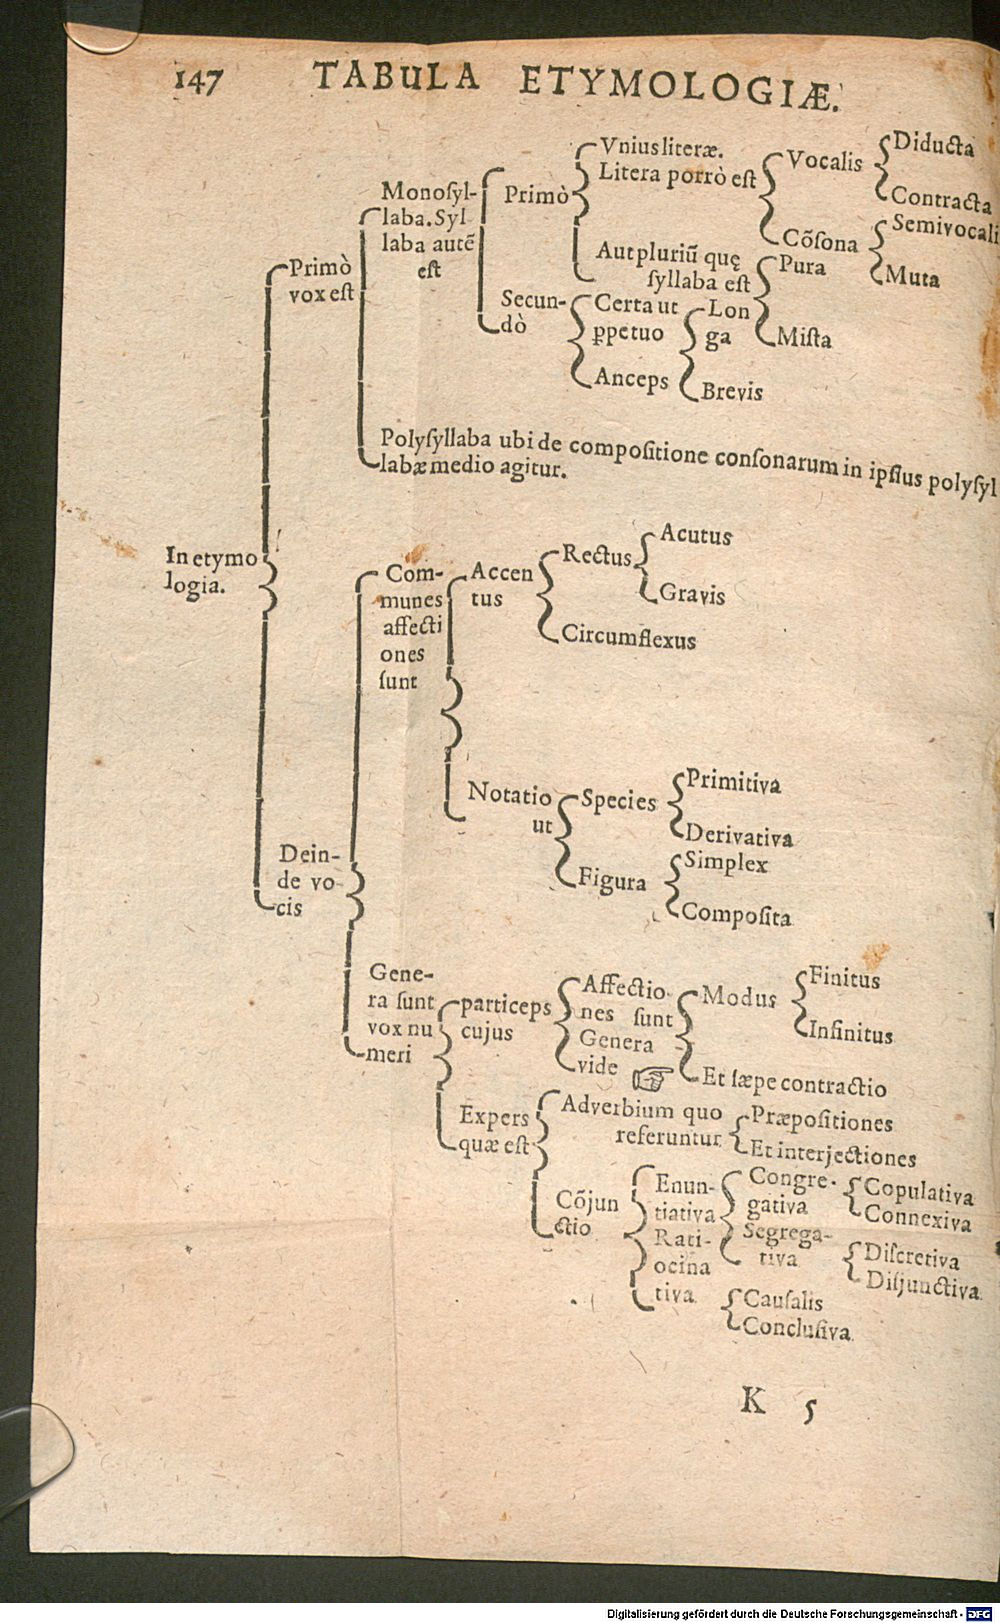 147 TABULA ETYMOLOGIÆ.
Vnius literæ.
Litera porrò est
Vocalis
Diducta
Contracta
Cõſona
Semivocali
Muta
Monoſyl-
laba. Syl
laba autẽ
eſt
Primò
Aut pluriũ quę
ſyllaba eſt
Pura
Miſta
Secun-
dò
Certa ut
ꝑpetuo
Lon
ga
Brevis
Anceps
Primò
vox eſt
Polyſyllaba ubi de compoſitione conſonarum in ipſius polyſyl
labæ medio agitur.
In etymo
logia.
Com-
munes
affecti
ones
ſunt
Accen
tus
Rectus
Acutus
Gravis
Circumflexus
Notatio
ut
Species
Primitiva
Derivativa
Figura
Simplex
Compoſita
Dein-
de vo
cis
Gene-
ra ſunt
vox nu
meri
particeps
cujus
Affectio
nes ſunt
Genera
vide ☞
Modus
Finitus
Infinitus
Et ſæpe contractio
Expers
quæ eſt
Adverbium quo
referuntur
Præpoſitiones
Et interjectiones
Cõjun
ctio
Enun-
tiativa
Congre-
gativa
Copulativa
Connexiva
Segrega-
tiva
Diſcretiva
Disjunctiva
Rati-
ocina
tiva
Cauſalis
Concluſiva
K 5
Digitalisierung gefördert durch die Deutsche Forschungsgemeinschaft - DFG